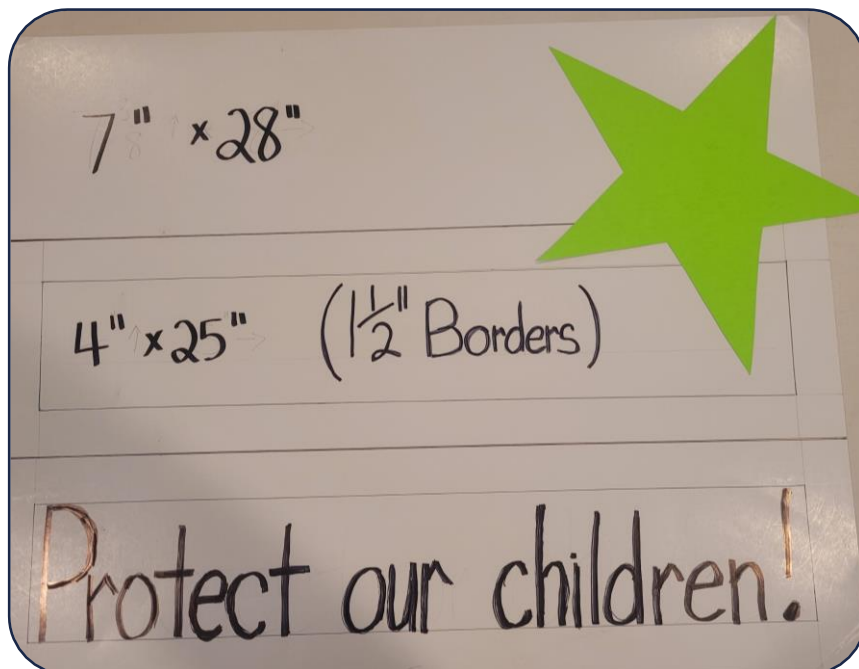 7" × 28"
4" × 25" (1 1/2" Borders)
Protect our children!